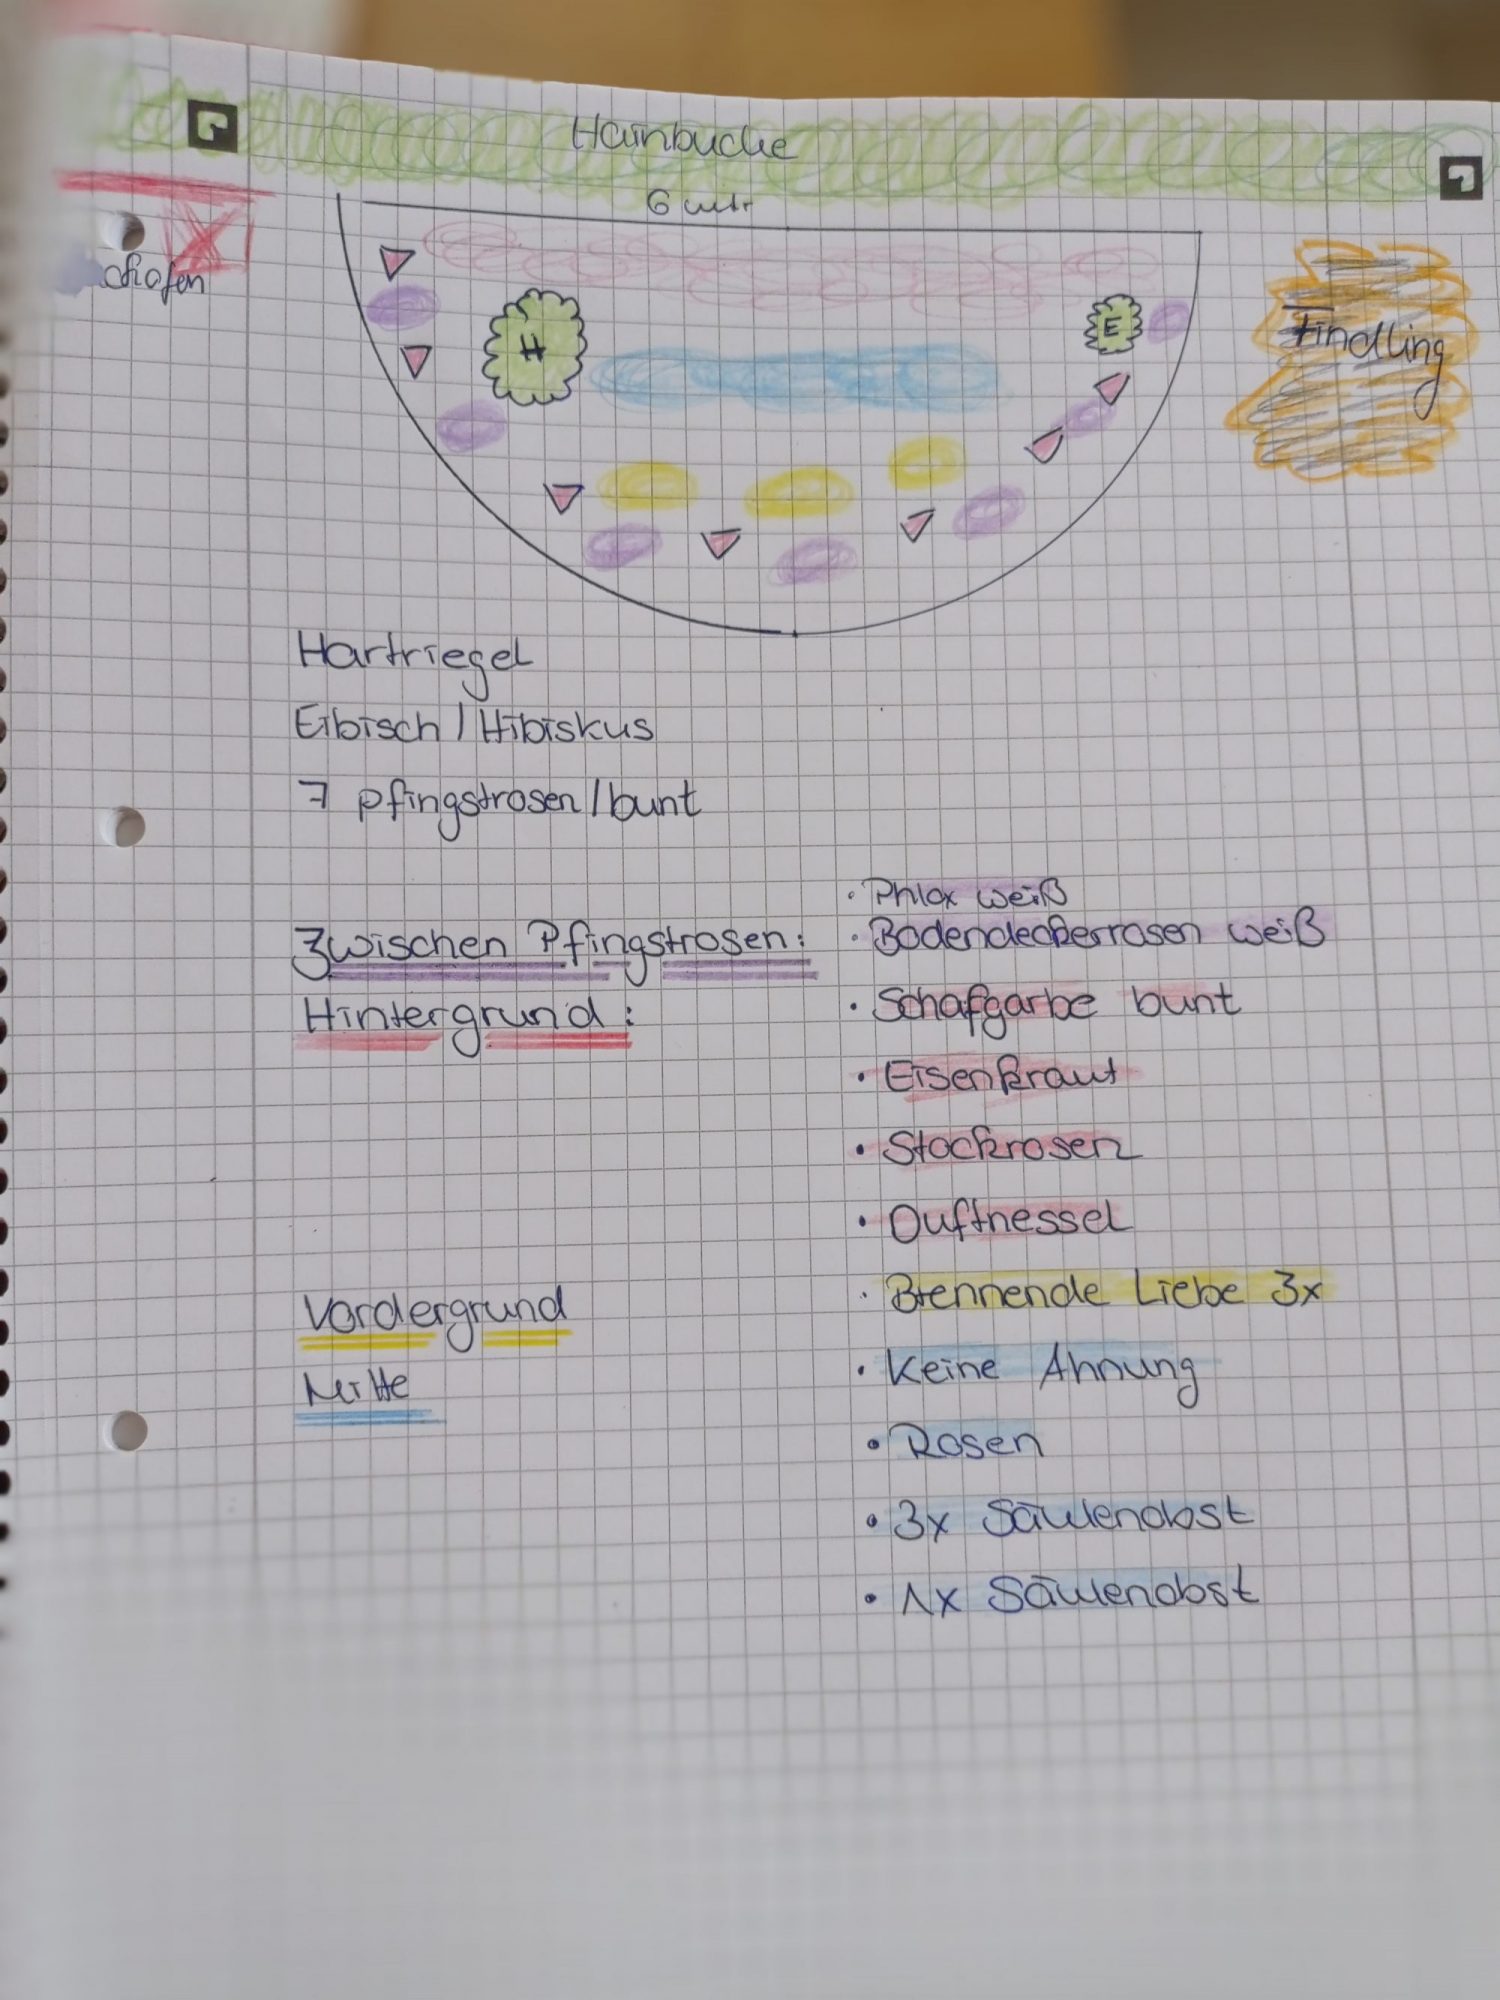 Hainbuche
6 mtr
H
E
Findling
Hartriegel
Eibisch / Hibiskus
7 Pfingstrosen / bunt
· Phlox weiß
Zwischen Pfingstrosen: · Bodendeckerrosen weiß
Hintergrund: · Schafgarbe bunt
· Eisenkraut
· Stockrosen
· Duftnessel
Vordergrund · Brennende Liebe 3x
Mitte · Keine Ahnung
· Rosen
· 3x Säulenobst
· 1x Säulenobst